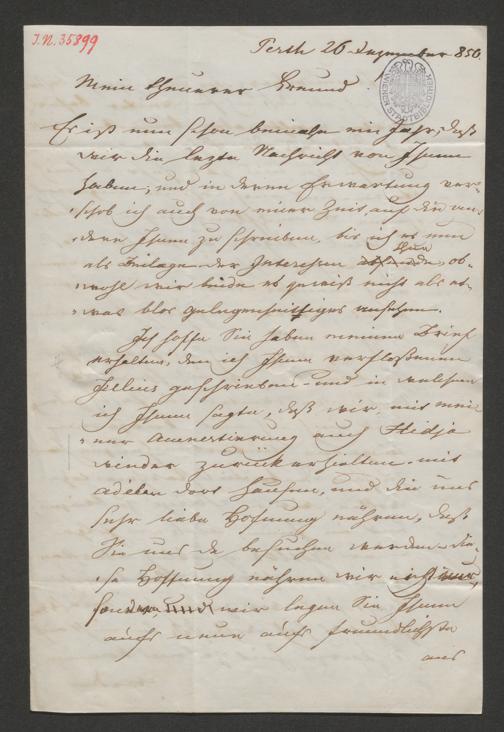 J.N. 35899
Pesth 26 Dezember 850.
WIENER STADTBIBLIOTHEK
Mein theuerer Freund!
Es ist nun schon beinahe ein Jahr, daß
wir die lezte Nachricht von Ihnen
haben, und in deren Erwartung ver-
schob ich auch von einer Zeit auf die an-
dere Ihnen zu schreiben, bis ich es nun
als Beilage der Interessen thue ob-
wohl wir beide es gewiß nicht als et-
was blos gelegenheitliches ansehen.
Ich hoffe Sie haben meinen Brief
erhalten, den ich Ihnen verfloßenen
geschrieben und in welchem
ich Ihnen sagte, daß wir mit mei-
ner auch
wieder zurückerhalten mit
Adelen dort hausen, und die uns
sehr liebe Hofnung nähren, daß
Sie uns da besuchen werden. Die-
se Hoffnung nähren wir nicht nur,
sondern wir legen Sie Ihnen
aufs neue aufs freundlichste
ans